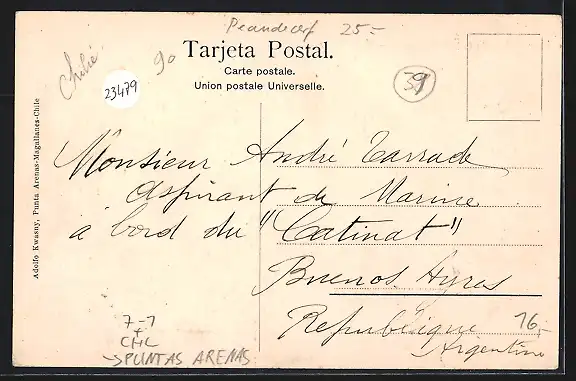 25-
Chile
90
Tarjeta Postal.
Carte postale.
Union postale Universelle.
39
23479
Adolfo Kwasny, Punta Arenas-Magallanes-Chile
Monsieur André Tarrade
aspirant de Marine
à bord du "Catinat"
Buenos Ayres
République
Argentine
16,-
7-1
CHL
→PUNTAS ARENAS